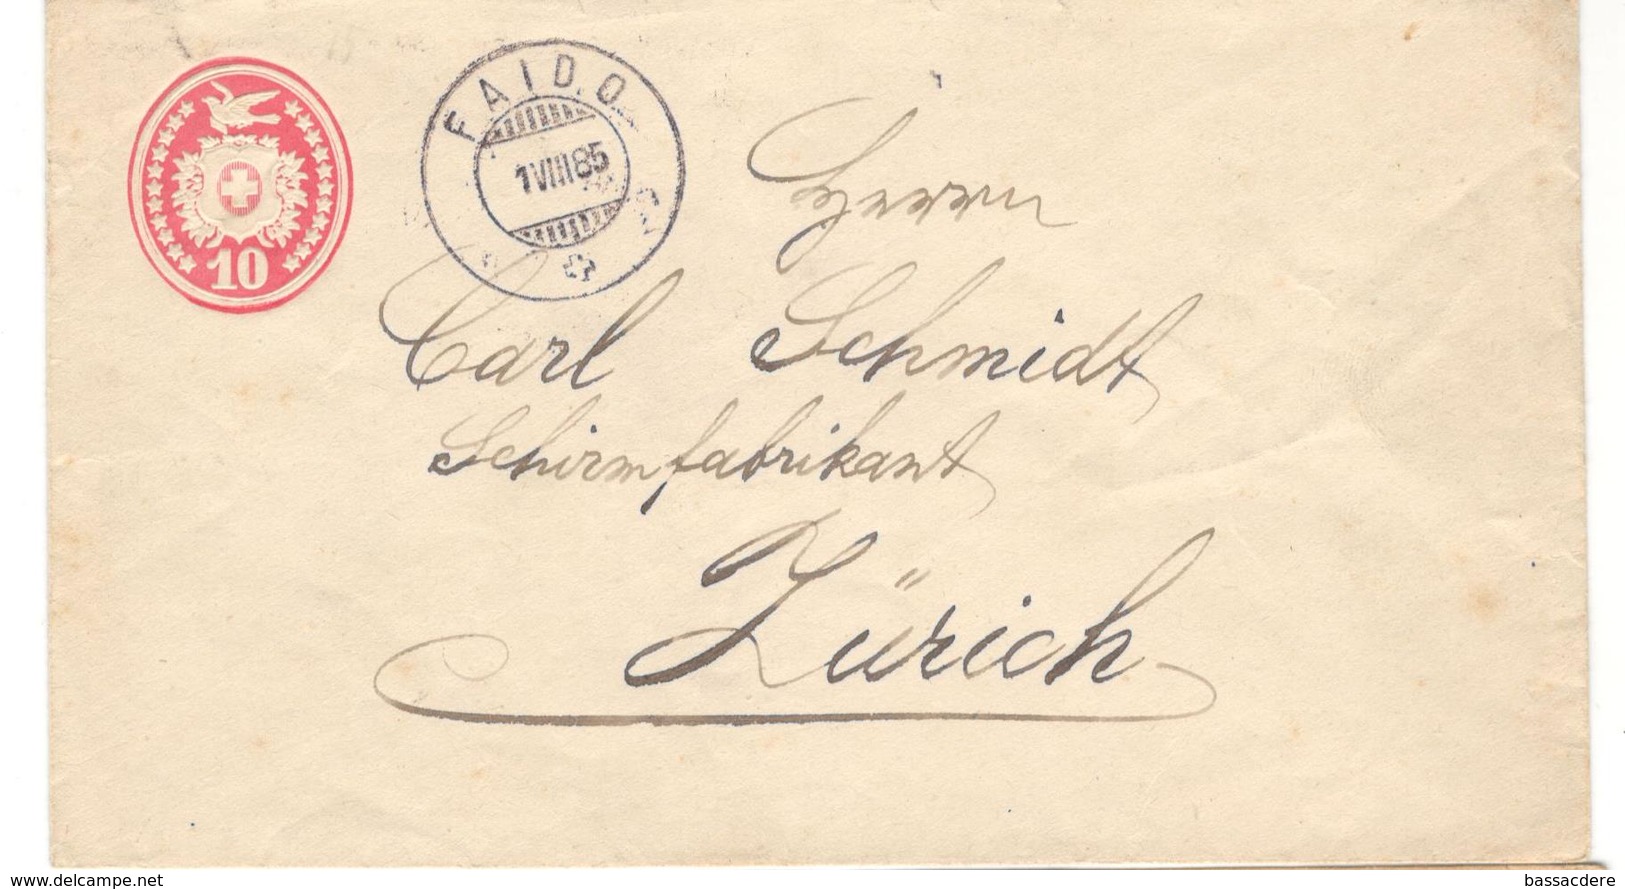 10
FAIDO
1 VIII 85
Herrn
Carl Schmidt
Schirmfabrikant
Zürich
www.delcampe.net
bassacdere